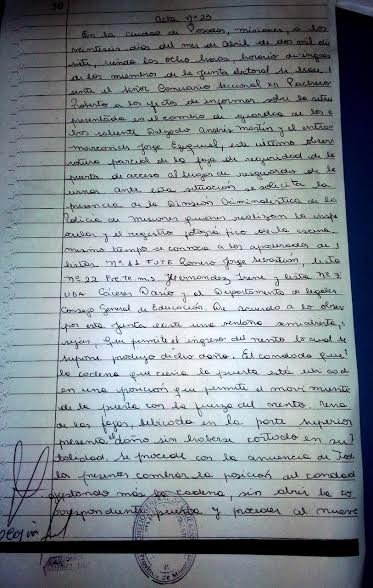 Acta Nº 23
En la ciudad de Posadas, misiones, a los
veintiseis dias del mes de Abril de dos mil di
siete, siendo las ocho horas, horario de ingreso
de los miembros de la Junta electoral se hace
sente el señor Comisario Seccional XII Pacheco
Roberto a los efectos de informar sobre la
presentada en el cambio de guardia de los
saliente Delgado Andrés Martín y el entran
Marconich Jorge Ezequiel, este ultimo observ
rotura parcial de la faja de seguridad de la
puerta de acceso al lugar de resguardo de las
urnas. Ante esta situación se solicita la
presencia de la Dirección Criminalística de la
Policia de Misiones quienes realizan la inspe
ocular y el registro fotográfico de la escena.
mismo tiempo se convoca a los apoderados de
listas Nº 11 Romero Jorge Sebastián, lista
Nº 22 Fre.Te.m.s Hernandez Irene y lista Nº
UDA Cáceres Dario y al Departamento de legales
Consejo General de Educación. De acuerdo a lo obser
por esta Junta existe una ventana semiabierta,
rejas, que permite el ingreso del viento lo cual se
supone produjo dicho daño. El candado que
la cadena que cierra la puerta está ubicad
en una posición que permite el movimiento
de la puerta con la fuerza del viento.
de las fajas, ubicada en la parte superior
presenta daño sin haberse cortado en su
talidad, se procede con la anuencia de Tod
los presentes cambiar la posición del candad
ajustando más la cadena, sin abrir la co
rrespondiente puerta y proceder al nuevo